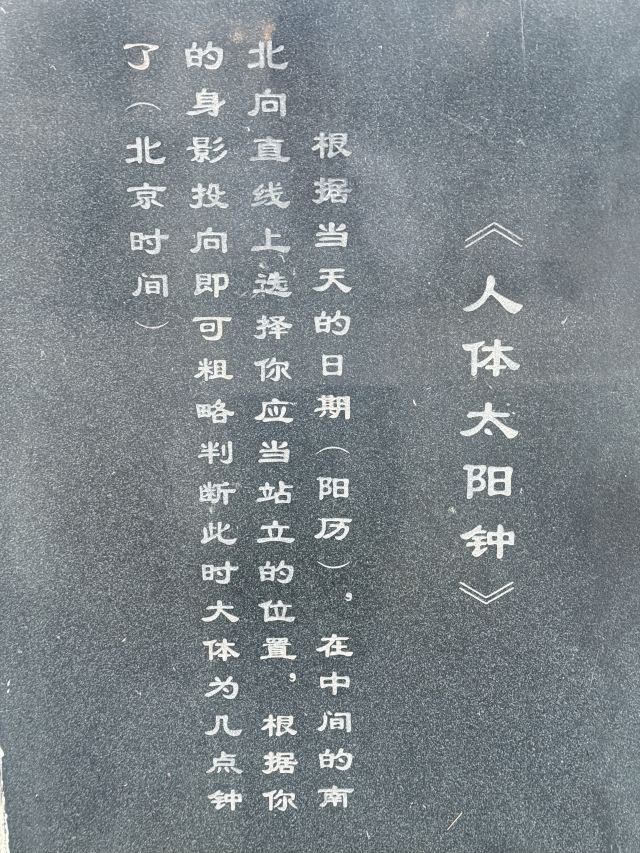 《人体太阳钟》
根据当天的日期（阳历），在中间的南
北向直线上选择你应当站立的位置，根据你
的身影投向即可粗略判断此时大体为几点钟
了（北京时间）